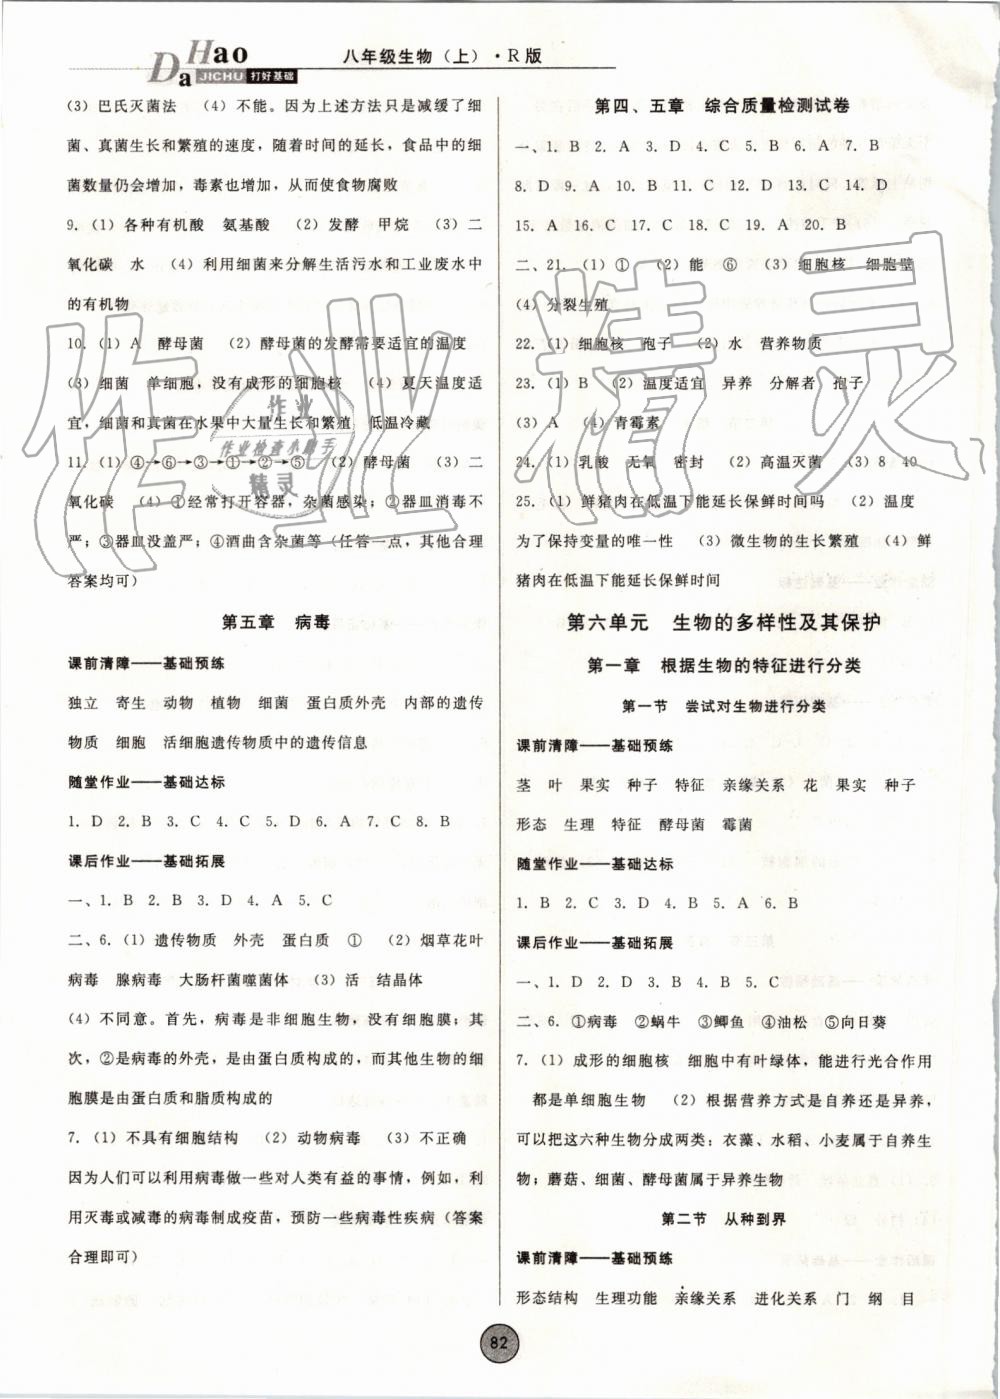 DaHao
JICHU 打好基础
八年级生物（上）·R版
（3）巴氏灭菌法　（4）不能。因为上述方法只是减缓了细
菌、真菌生长和繁殖的速度，随着时间的延长，食品中的细
菌数量仍会增加，毒素也增加，从而使食物腐败
9.（1）各种有机酸　氨基酸　（2）发酵　甲烷　（3）二
氧化碳　水　（4）利用细菌来分解生活污水和工业废水中
的有机物
10.（1）A　酵母菌　（2）酵母菌的发酵需要适宜的温度
（3）细菌　单细胞，没有成形的细胞核　（4）夏天温度适
宜，细菌和真菌在水果中大量生长和繁殖　低温冷藏
11.（1）④→⑥→③→①→②→⑤　（2）酵母菌　（3）二
氧化碳　（4）①经常打开容器，杂菌感染；②器皿消毒不
严；③器皿没盖严；④酒曲含杂菌等（任答一点，其他合理
答案均可）
第五章　病毒
课前清障——基础预练
独立　寄生　动物　植物　细菌　蛋白质外壳　内部的遗传
物质　细胞　活细胞遗传物质中的遗传信息
随堂作业——基础达标
1. D　2. B　3. C　4. C　5. D　6. A　7. C　8. B
课后作业——基础拓展
一、1. B　2. B　3. D　4. A　5. C
二、6.（1）遗传物质　外壳　蛋白质　①　（2）烟草花叶
病毒　腺病毒　大肠杆菌噬菌体　（3）活　结晶体
（4）不同意。首先，病毒是非细胞生物，没有细胞膜；其
次，②是病毒的外壳，是由蛋白质构成的，而其他生物的细
胞膜是由蛋白质和脂质构成的
7.（1）不具有细胞结构　（2）动物病毒　（3）不正确
因为人们可以利用病毒做一些对人类有益的事情，例如，利
用灭毒或减毒的病毒制成疫苗，预防一些病毒性疾病（答案
合理即可）
第四、五章　综合质量检测试卷
一、1. B　2. A　3. D　4. C　5. B　6. A　7. B
8. D　9. A　10. B　11. C　12. D　13. C　14. D
15. A　16. C　17. C　18. C　19. A　20. B
二、21.（1）①　（2）能　⑥　（3）细胞核　细胞壁
（4）分裂生殖
22.（1）细胞核　孢子　（2）水　营养物质
23.（1）B　（2）温度适宜　异养　分解者　孢子
（3）A　（4）青霉素
24.（1）乳酸　无氧　密封　（2）高温灭菌　（3）8　40
25.（1）鲜猪肉在低温下能延长保鲜时间吗　（2）温度
为了保持变量的唯一性　（3）微生物的生长繁殖　（4）鲜
猪肉在低温下能延长保鲜时间
第六单元　生物的多样性及其保护
第一章　根据生物的特征进行分类
第一节　尝试对生物进行分类
课前清障——基础预练
茎　叶　果实　种子　特征　亲缘关系　花　果实　种子
形态　生理　特征　酵母菌　霉菌
随堂作业——基础达标
1. B　2. C　3. D　4. B　5. A　6. B
课后作业——基础拓展
一、1. D　2. D　3. B　4. B　5. C
二、6. ①病毒　②蜗牛　③鲫鱼　④油松　⑤向日葵
7.（1）成形的细胞核　细胞中有叶绿体，能进行光合作用
都是单细胞生物　（2）根据营养方式是自养还是异养，
可以把这六种生物分成两类：衣藻、水稻、小麦属于自养生
物；蘑菇、细菌、酵母菌属于异养生物
第二节　从种到界
课前清障——基础预练
形态结构　生理功能　亲缘关系　进化关系　门　纲　目
82
作业精灵
作业
作业检查小助手
精灵